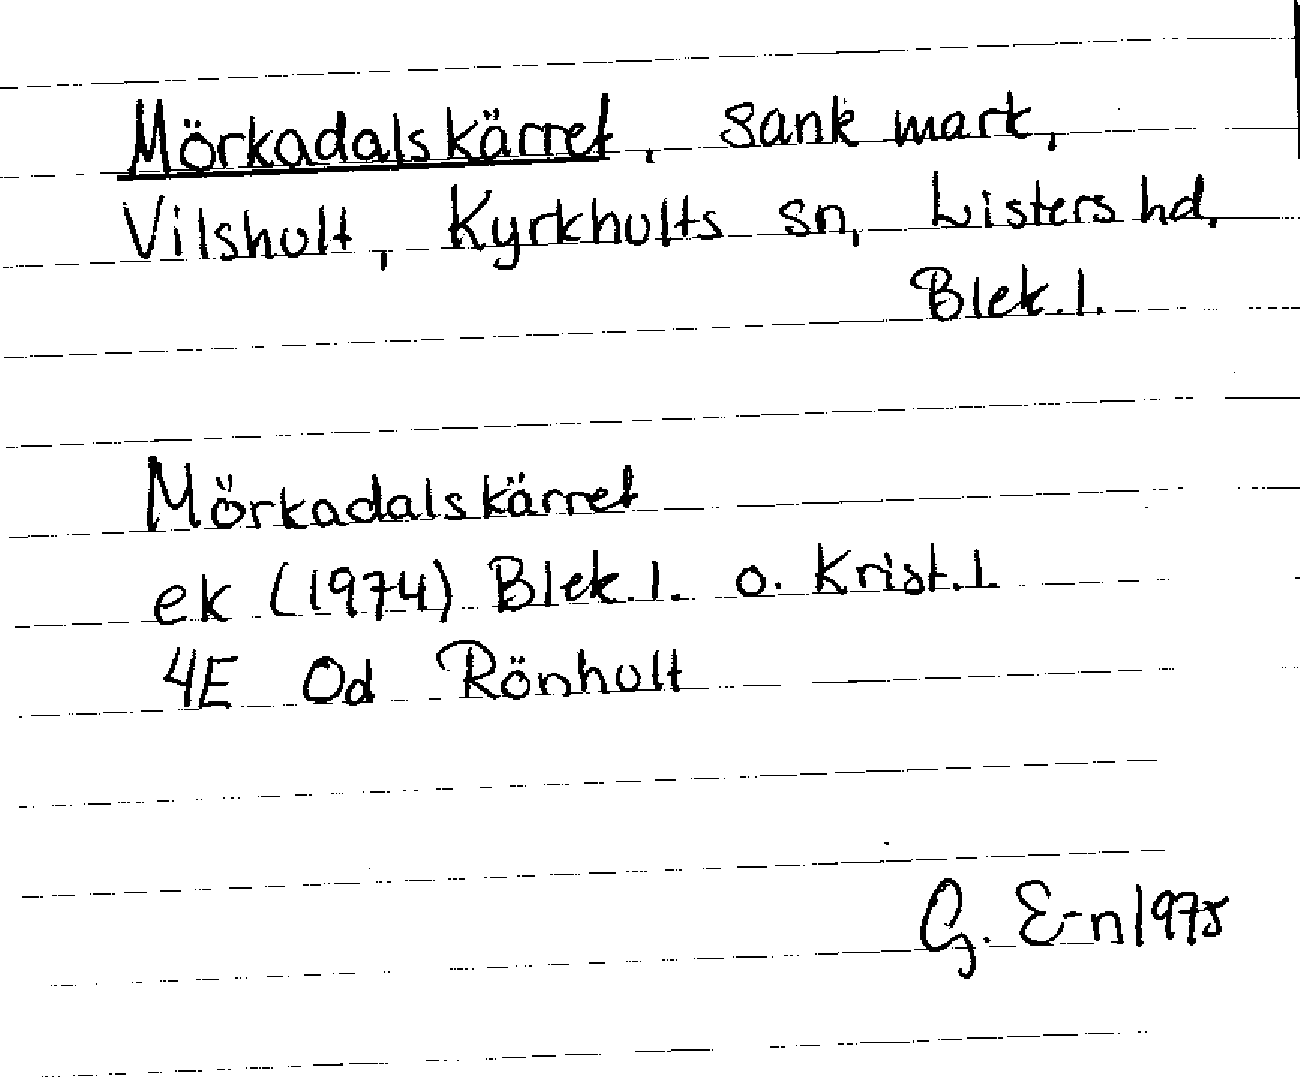 Mörkadalskärret, sank mark,
Vilshult, Kyrkhults sn, Listers hd,
Blek. l.
Mörkadalskärret
ek (1974) Blek. l. o. Krist. l
4E Od Rönholt
G. E-n 1975